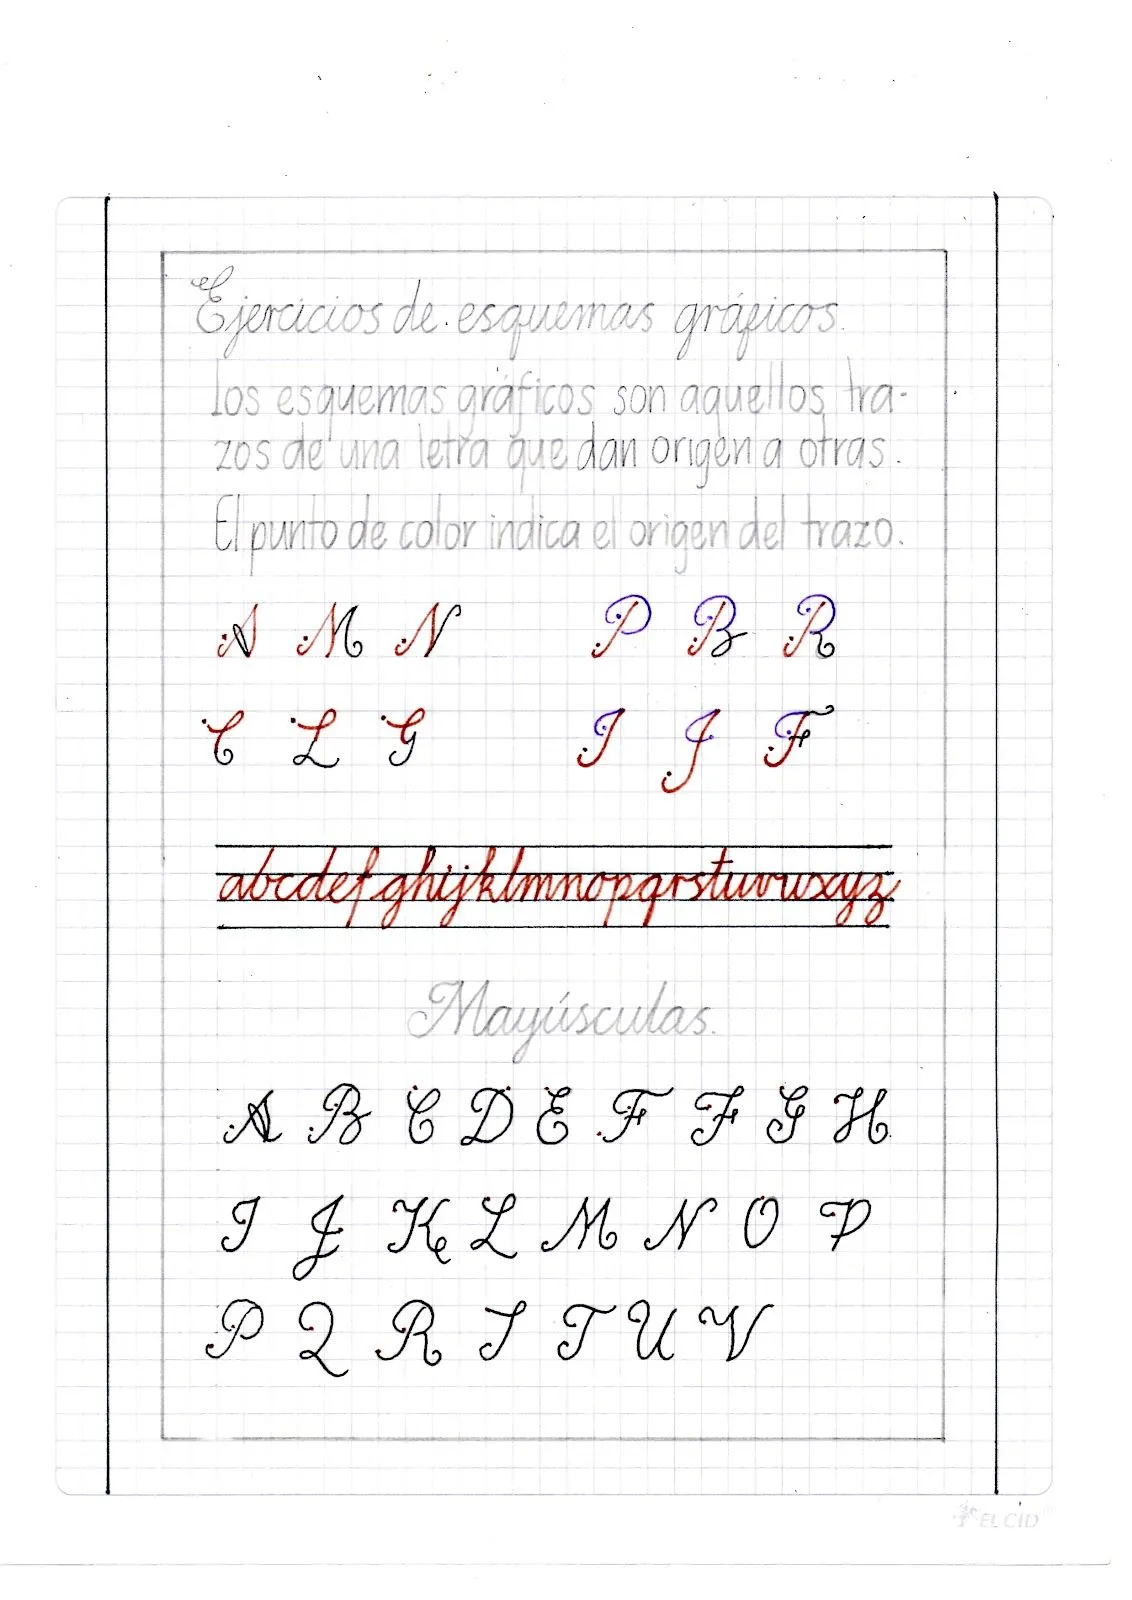 Ejercicios de esquemas gráficos.
los esquemas gráficos son aquellos tra-
zos de una letra que dan origen a otras.
El punto de color indica el origen del trazo.
A M N P B R
C L G I J F
abcdefghijklmnopqrstuvwxyz
Mayúsculas.
A B C D E F F G H
I J K L M N O P
P Q R S T U V
EL CID